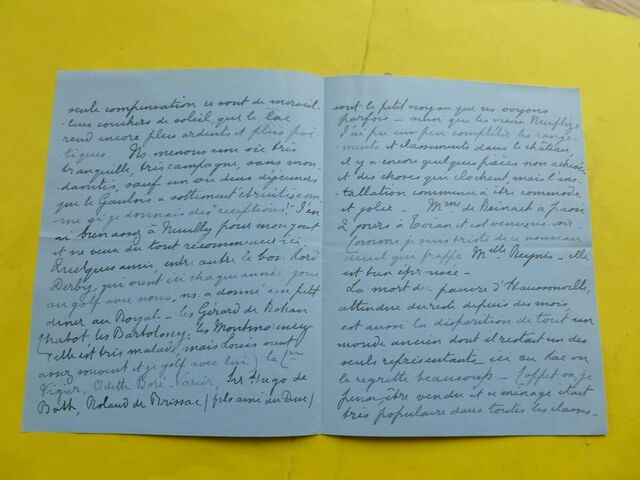 seule compensation ce sont de merveil-
leux couchers de soleil, que le lac
rend encore plus ardents et plus poé-
tiques. Ns. menons une vie très
tranquille, très campagne, sans mon-
danités, sauf un ou deux
que le Gaulois a sottement
me si je donnais des réceptions! J'en
ai bien assez à Neuilly pour mon gout
et ne veux du tout recommencer ici.
Quelques amis, entre autre le bon Lord
Derby, qui vient ici chaque année jouer
au golf avec nous, ns. a donné un petit
diner au Royal. - les Gérard de Rohan
Chabot, les Bartolony, les Montmorency
(elle est très malade, mais Louis vient
assez souvent et je golf avec lui) la Ctesse
Vigier, Odette Sir Hugo de
Roland de Brissac (fils ainé du Duc)
sont le petit noyau que ns voyons
parfois - ainsi que les vieux Neuflize
J'ai pu un peu compléter les range-
ments et classements dans le château,
il y a encore quelques pièces non achevées
et des choses qui clochent mais l'ins-
tallation commence à être commode
et jolie - Mme de Reinach a passé
2 jours à Evian et est venue ns. voir -
Comme je suis triste de ce nouveau
deuil qui frappe Melle - elle
est bien éprouvée -
La mort du pauvre d'Haussonville,
attendue du reste depuis des mois,
est aussi la disparition de tout un
monde ancien dont il restait un des
seuls représentants - ici au lac on
le regrette beaucoup - Coppet va je
pense être vendu et ce ménage était
très populaire dans toutes les classes -